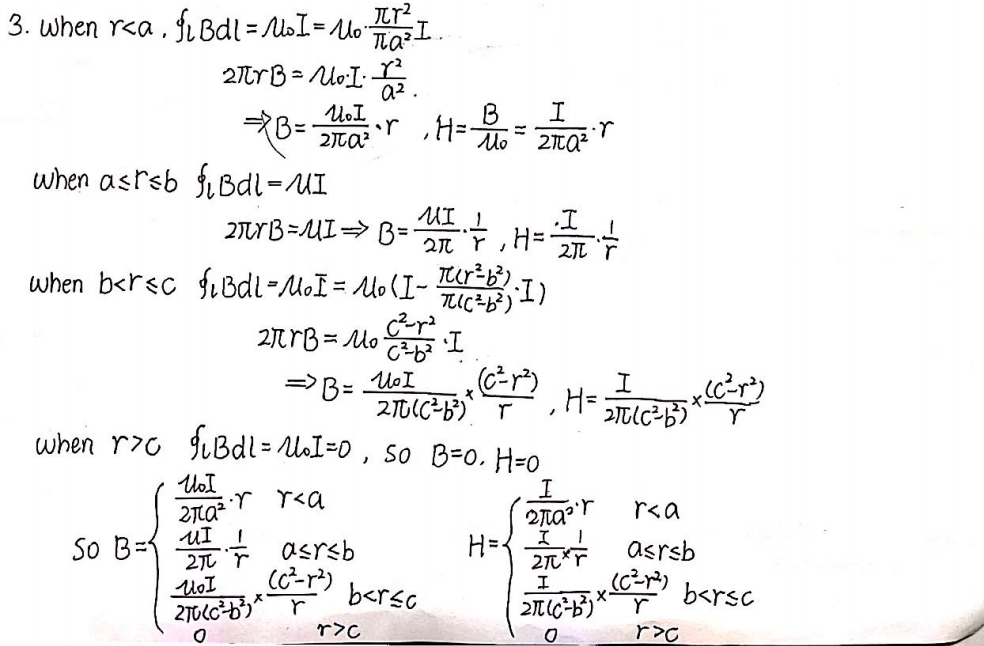 3. when r<a, ∮ₗBdl=μ₀I=μ₀·πr²/πa² I.
2πrB=μ₀·I·r²/a².
⇒B=μ₀I/2πa²·r , H=B/μ₀=I/2πa²·r
when a≤r≤b ∮ₗBdl=μI
2πrB=μI⇒B=μI/2π·1/r , H=I/2π·1/r
when b<r≤c ∮ₗBdl=μ₀I=μ₀(I-π(r²-b²)/π(c²-b²)·I)
2πrB=μ₀ c²-r²/c²-b²·I
⇒B=μ₀I/2π(c²-b²)×(c²-r²)/r , H=I/2π(c²-b²)×(c²-r²)/r
when r>c ∮ₗBdl=μ₀I=0 , so B=0. H=0
So B={ μ₀I/2πa²·r r<a
μI/2π·1/r a≤r≤b
μ₀I/2π(c²-b²)×(c²-r²)/r b<r≤c
0 r>c
H={ I/2πa²·r r<a
I/2π×1/r a≤r≤b
I/2π(c²-b²)×(c²-r²)/r b<r≤c
0 r>c